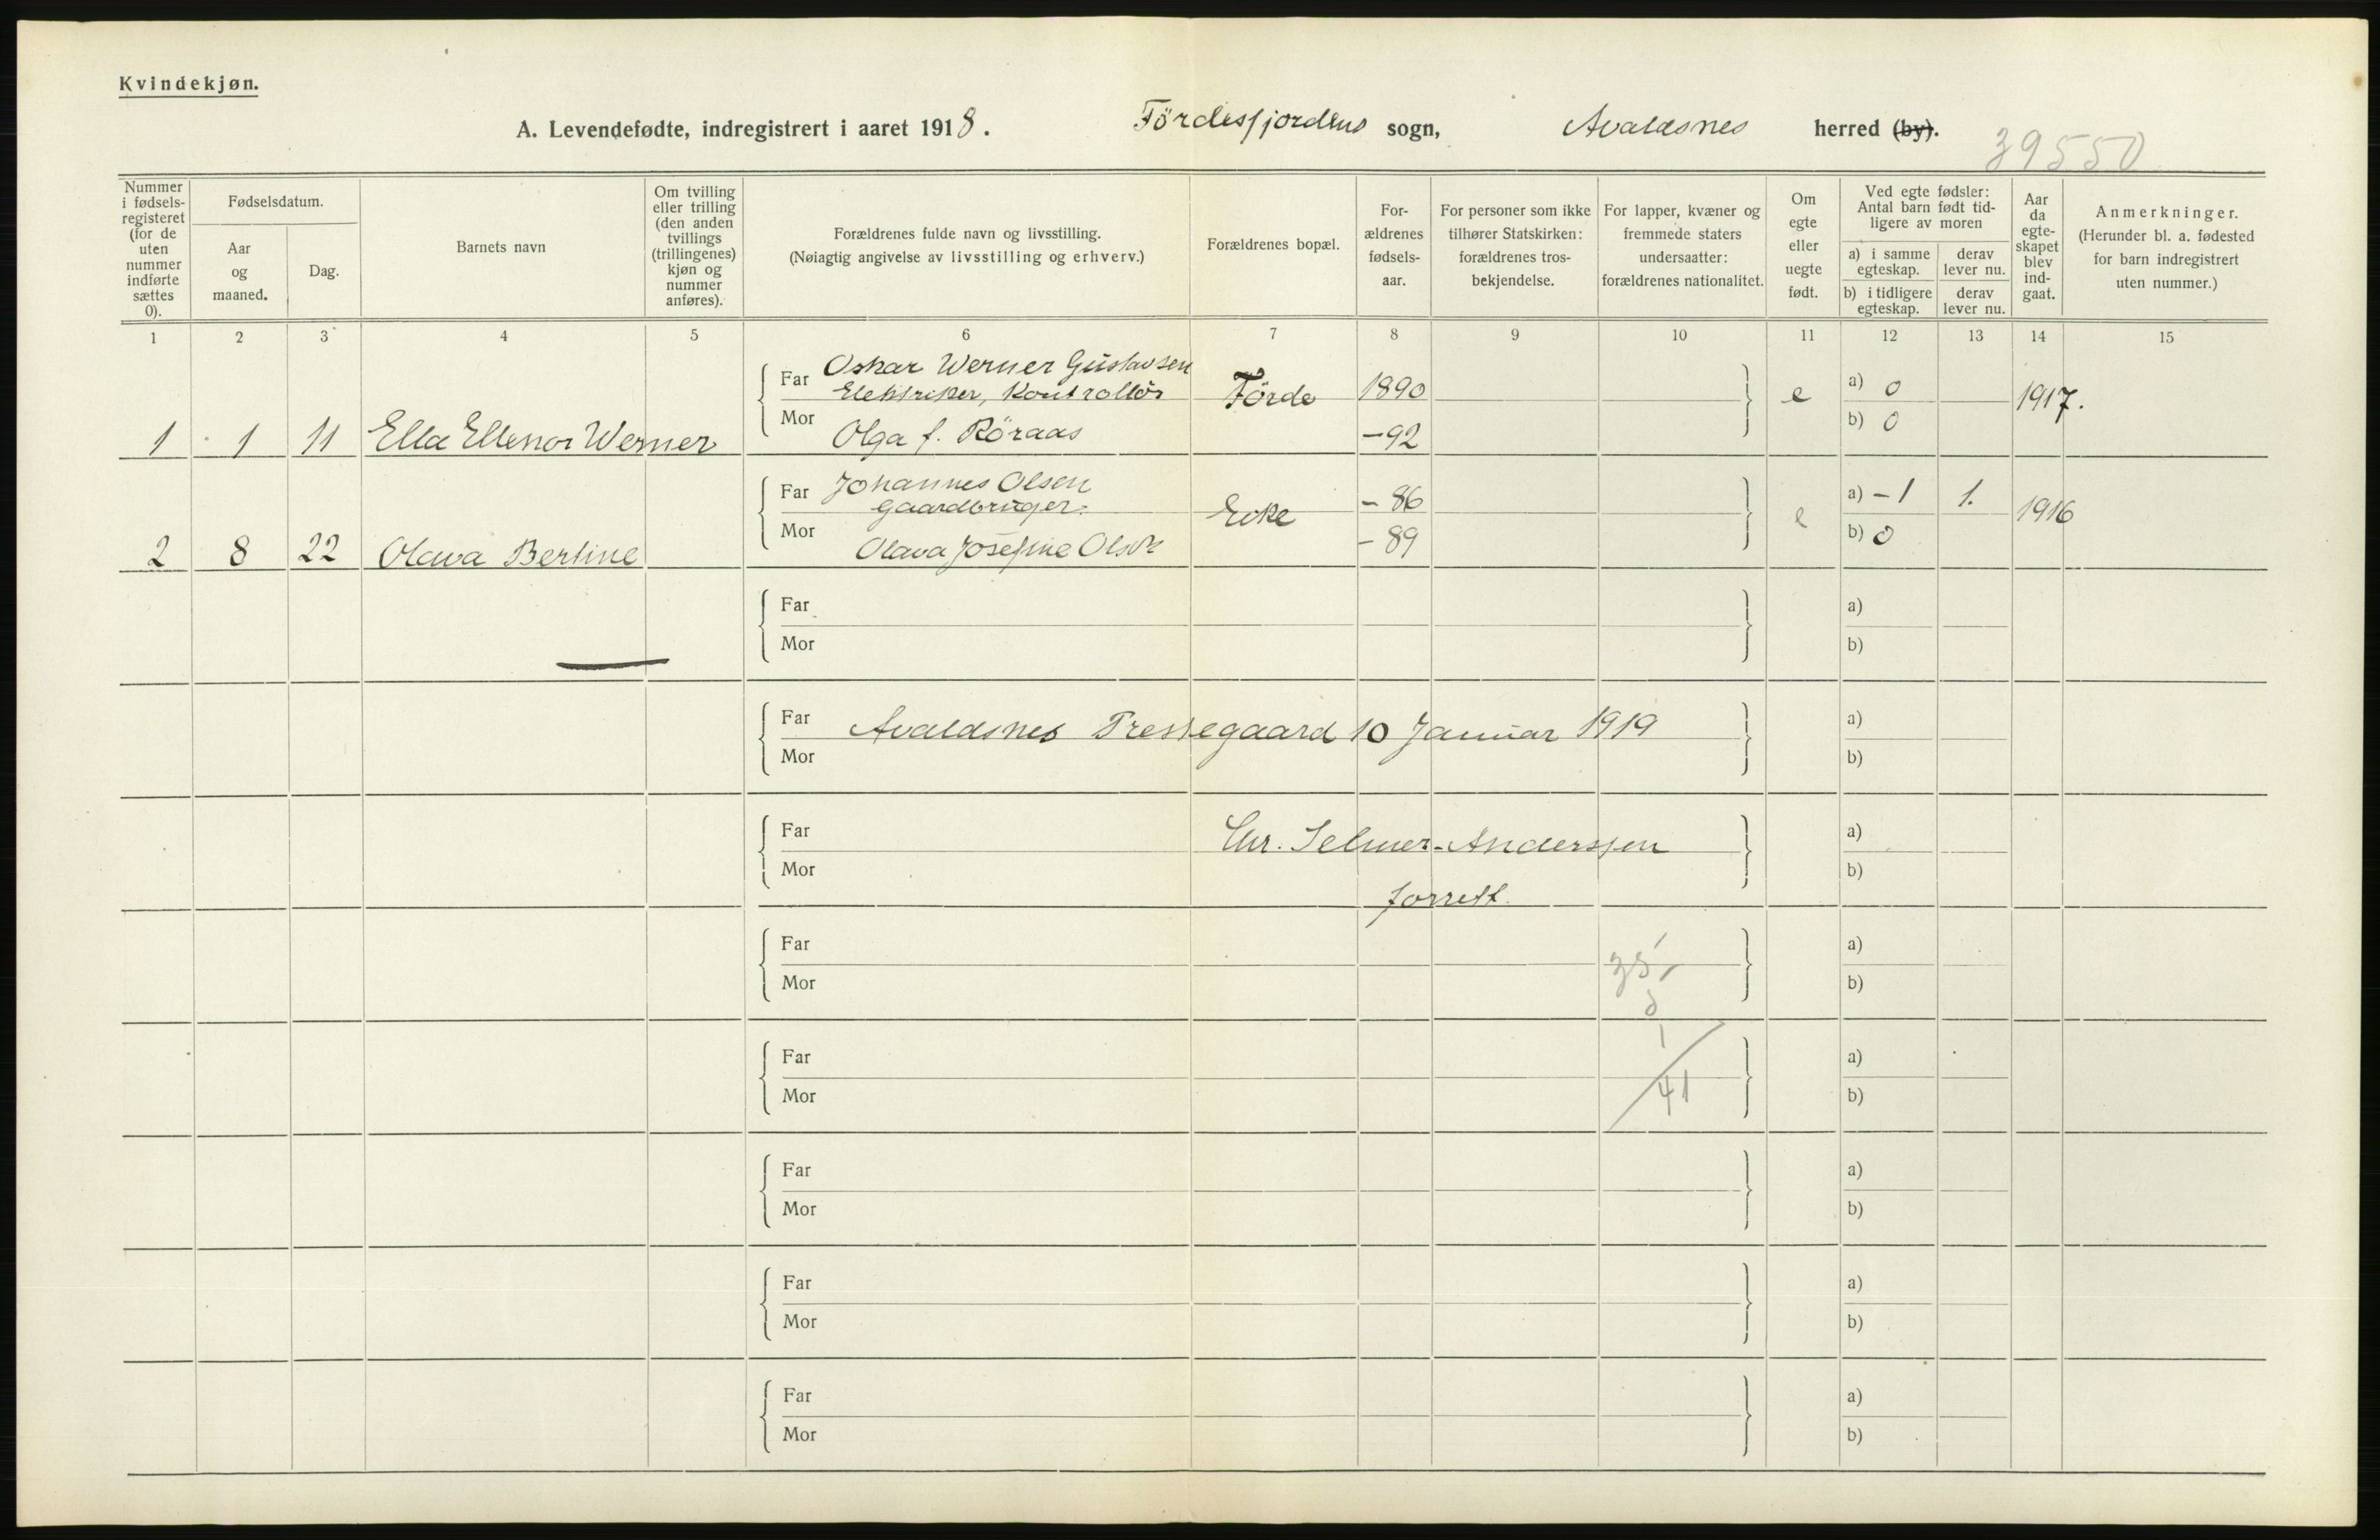 Kvindekjøn.
A. Levendefødte, indregistrert i aaret 1918. Fördesfjordens sogn, Avaldsnes herred (by).
39550
Nummer i fødsels-registeret (for de uten nummer indførte sættes 0).
Fødselsdatum.
Aar og maaned.
Dag.
Barnets navn
Om tvilling eller trilling (den anden tvillings (trillingenes) kjøn og nummer anføres).
Forældrenes fulde navn og livsstilling.
(Nøiagtig angivelse av livsstilling og erhverv.)
Forældrenes bopæl.
For-ældrenes fødsels-aar.
For personer som ikke tilhører Statskirken: forældrenes tros-bekjendelse.
For lapper, kvæner og fremmede staters undersaatter: forældrenes nationalitet.
Om egte eller uegte født.
Ved egte fødsler: Antal barn født tid-ligere av moren
a) i samme egteskap.
derav lever nu.
b) i tidligere egteskap.
derav lever nu.
Aar da egte-skapet blev ind-gaat.
Anmerkninger.
(Herunder bl. a. fødested for barn indregistrert uten nummer.)
1 2 3 4 5 6 7 8 9 10 11 12 13 14 15
Far Oskar Werner Gustavsen
Elektriker, Kontrollör Förde 1890 e a) 0 1917.
1 1 11 Ella Ellenor Werner Mor Olga f. Röraas -92 b) 0
Far Johannes Olsen
Gaardbruger. - 86 e a) - 1 1. 1916
2 8 22 Olava Bertine Mor Olava Josefine Olsen - 89 b) 0
Far a)
Mor b)
Far Avaldsnes Prestegaard 10 Januar 1919 a)
Mor b)
Far Chr. Selmer-Anderssen a)
Mor b)
Far 35 a)
Mor b)
Far a)
Mor 41 b)
Far a)
Mor b)
Far a)
Mor b)
Far a)
Mor b)